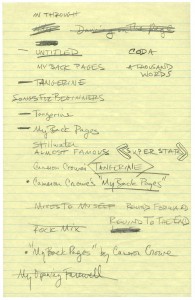 IN THROUGH
Dancing on the Page
UNTITLED CODA
MY BACK PAGES A THOUSAND WORDS
TANGERINE
SONGS FOR BEGINNERS
Tangerine
My Back Pages
Stillwater
ALMOST FAMOUS SUPERSTAR
Cameron Crowe's TANGERINE
Cameron Crowe's "My Back Pages"
NOTES TO MYSELF ROUND FORWARD
REWIND TO THE END
ROCK MIX
"My Back Pages" by Cameron Crowe
My Opening Farewell